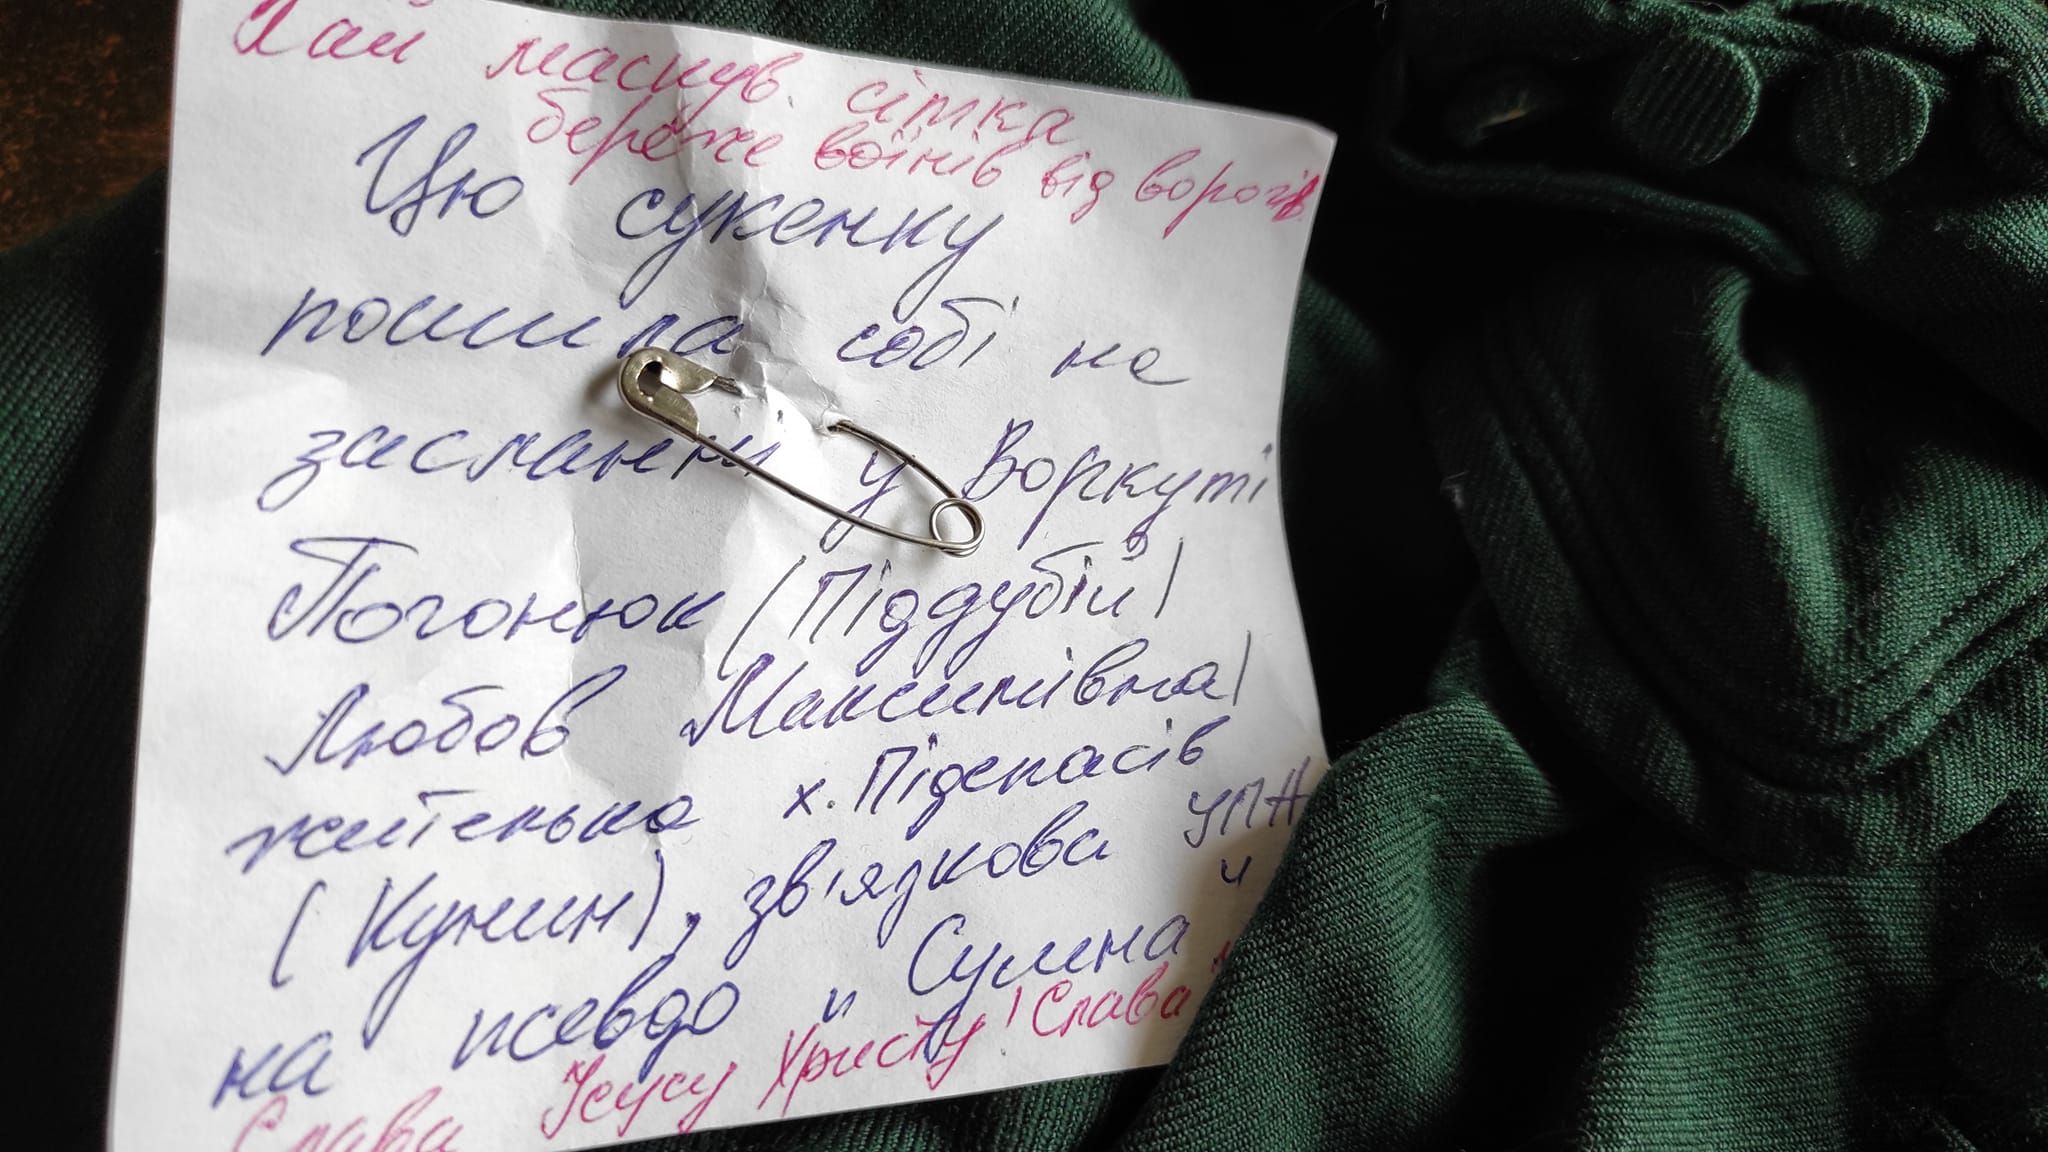 Хай маскув. сітка
береже воїнів від ворогів
Цю сукенку
пошила собі на
засланні у Воркуті
Погонюк (Піддубій)
Любов Максимівна)
жителька х. Підспасів
(Кунин), зв'язкова УПА
на псевдо "Сумна"
Слава Ісусу Христу! Слава